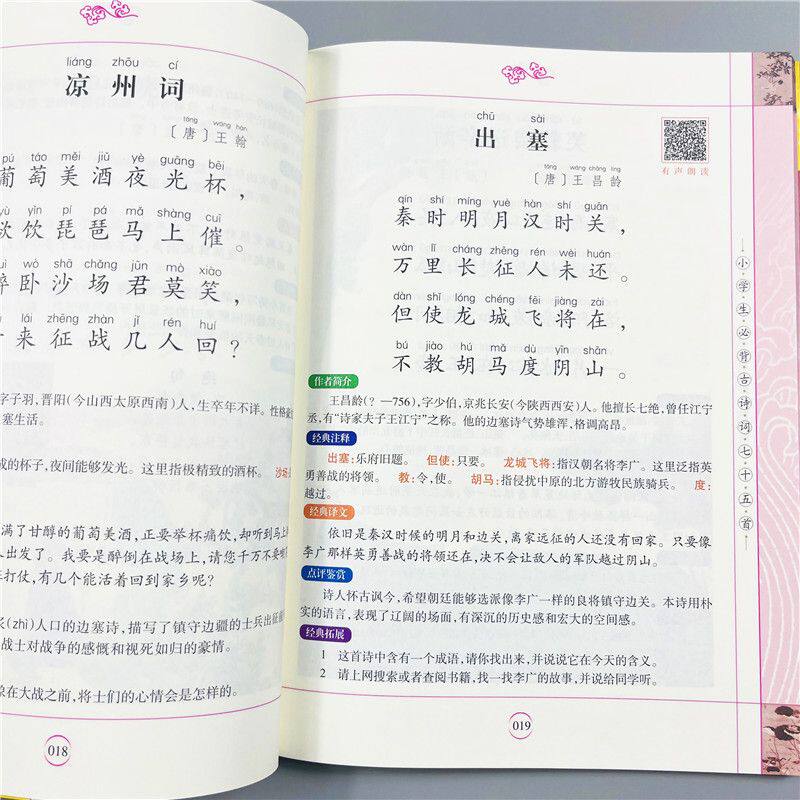 liáng zhōu cí
凉州词
táng wáng hàn
〔唐〕王翰
pú táo měi jiǔ yè guāng bēi
葡萄美酒夜光杯，
yù yǐn pí pá mǎ shàng cuī
欲饮琵琶马上催。
wò shā chǎng jūn mò xiào
醉卧沙场君莫笑，
lái zhēng zhàn jǐ rén huí
来征战几人回？
字子羽，晋阳（今山西太原西南）人，生卒年不详。性格豪
塞生活。
成的杯子，夜间能够发光。这里指极精致的酒杯。 沙场
满了甘醇的葡萄美酒，正要举杯痛饮，却听到马上
人出发了。我要是醉倒在战场上，请您千万不要
打仗，有几个能活着回到家乡呢？
炙（zhì）人口的边塞诗，描写了镇守边疆的士兵出征前
战士对战争的感慨和视死如归的豪情。
象在大战之前，将士们的心情会是怎样的。
018
chū sài
出塞
táng wáng chāng líng
〔唐〕王昌龄
有声朗读
qín shí míng yuè hàn shí guān
秦时明月汉时关，
wàn lǐ cháng zhēng rén wèi huán
万里长征人未还。
dàn shǐ lóng chéng fēi jiàng zài
但使龙城飞将在，
bú jiào hú mǎ dù yīn shān
不教胡马度阴山。
作者简介
王昌龄（？—756），字少伯，京兆长安（今陕西西安）人。他擅长七绝，曾任江宁
丞，有“诗家夫子王江宁”之称。他的边塞诗气势雄浑，格调高昂。
经典注释
出塞：乐府旧题。 但使：只要。 龙城飞将：指汉朝名将李广。这里泛指英
勇善战的将领。 教：令，使。 胡马：指侵扰中原的北方游牧民族骑兵。 度：
越过。
经典译文
依旧是秦汉时候的明月和边关，离家远征的人还没有回家。只要像
李广那样英勇善战的将领还在，决不会让敌人的军队越过阴山。
点评鉴赏
诗人怀古讽今，希望朝廷能够选派像李广一样的良将镇守边关。本诗用朴
实的语言，表现了辽阔的场面，有深沉的历史感和宏大的空间感。
经典拓展
1 这首诗中含有一个成语，请你找出来，并说说它在今天的含义。
2 请上网搜索或者查阅书籍，找一找李广的故事，并说给同学听。
019
小学生必背古诗词七十五首